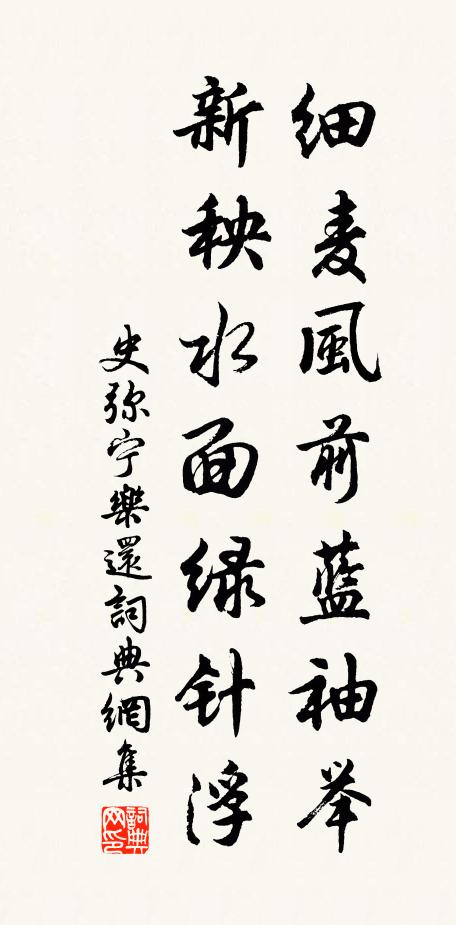 細麦風前藍袖举
新秧水面绿针浮
史弥宁樂還詞典網集
詞典网印